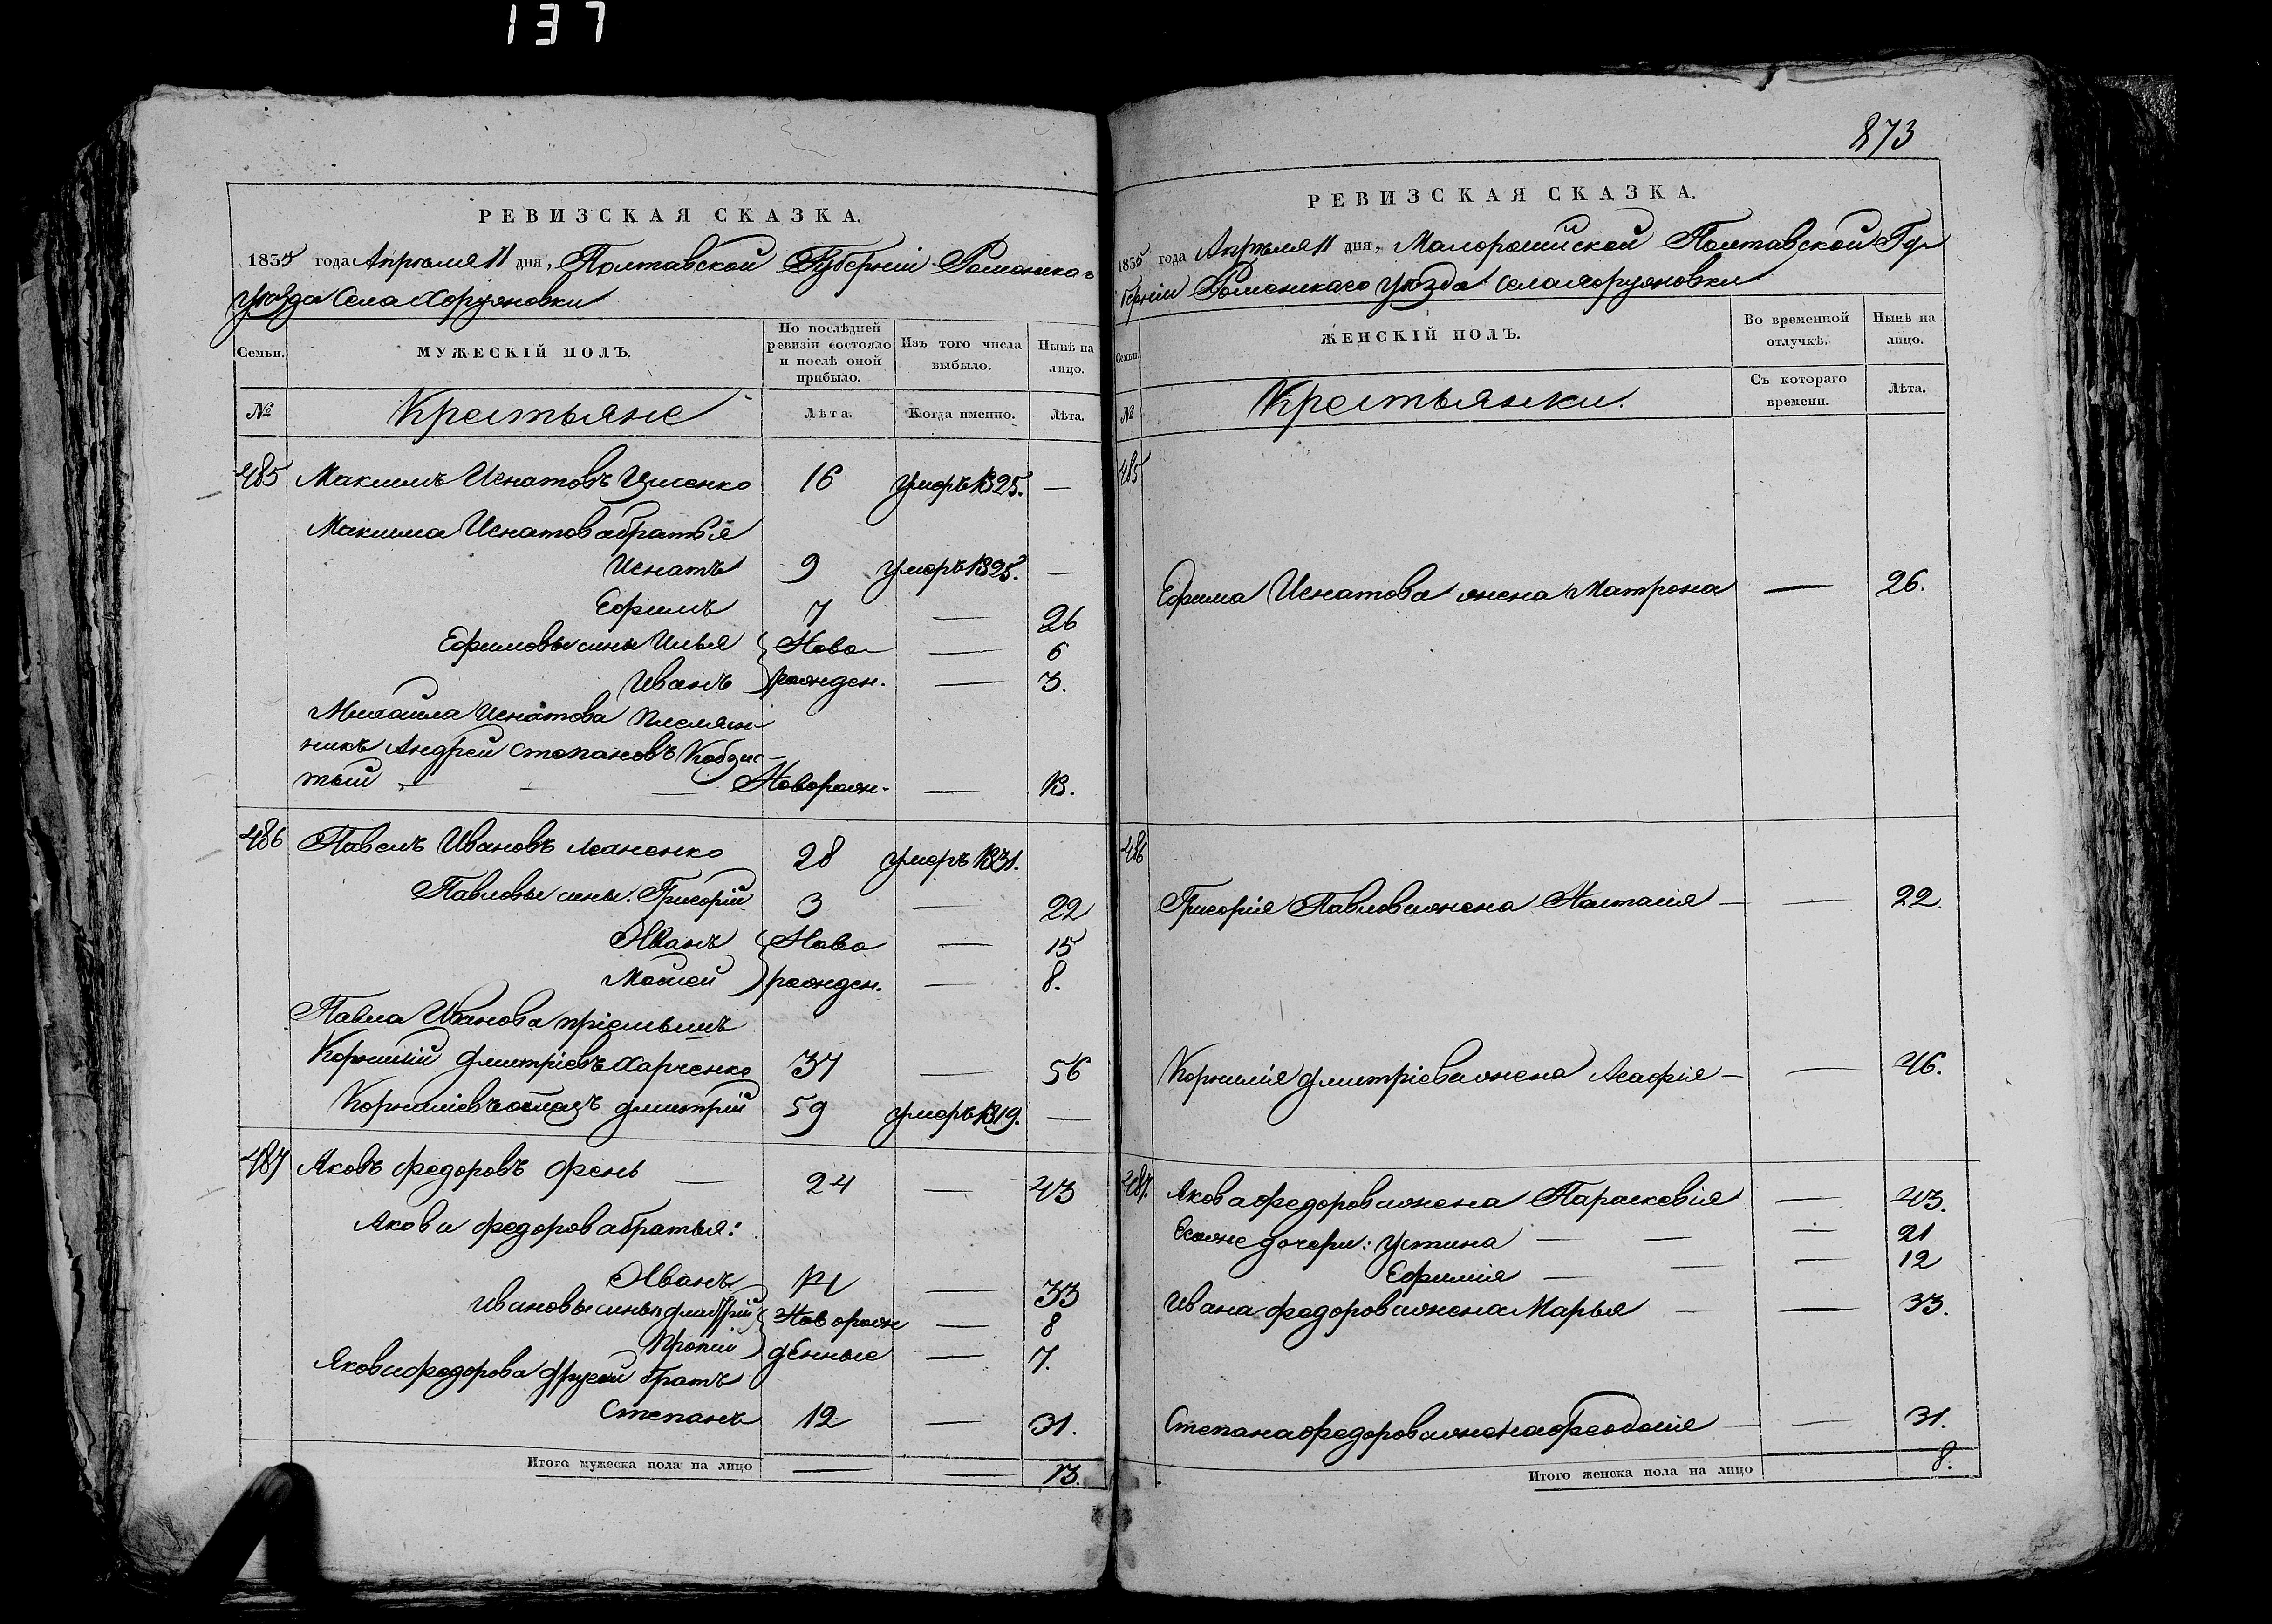 137
873
РЕВИЗСКАЯ СКАЗКА.
1835 года Апреля 11 дня, Полтавской Губернiи Роменскаго
уезда Села Хоружовки
Семьи.
МУЖЕСКIЙ ПОЛЪ.
По послѣдней ревизiи состояло и послѣ оной прибыло.
Изъ того числа выбыло.
Нынѣ на лицо.
№ Крестьяне Лѣта. Когда именно. Лѣта.
485 Максимъ Игнатовъ 16 умеръ 1825. —
Максима Игнатова братья
Игнатъ 9 умеръ 1825. —
Ефимъ 7 — 26
Ефимовы сины Илья Ново — 6
Иванъ рожден. — 3.
Михаила Игнатова племян
никъ Андрей Степановъ
тый Новорож. — 13.
486 Павелъ Ивановъ 28 умеръ 1831.
Павловы сины: Григорiй 3 — 22
Иванъ Ново — 15
Мойсей рожден. — 8.
Павла Иванова прiемышъ
Корнилiй Дмитрiевъ Харченко 37 — 56
Корнилiевъ отецъ Дмитрiй 59 умеръ 1819. —
487 Яковъ Федоровъ Фень — 24 — 43
Якова Федорова братья:
Иванъ 14 — 33
Ивановы сины Дмитрiй Новорож — 8
денные — 7.
Якова Федорова другой братъ
Степанъ 12 — 31.
Итого мужеска пола на лицо — — 13.
РЕВИЗСКАЯ СКАЗКА.
1835 года Апреля 11 дня, Малоросiйской Полтавской Гу
бернiи Роменскаго уезда села Хоружовки
Семьи.
ЖЕНСКIЙ ПОЛЪ.
Во временной отлучкѣ.
Нынѣ на лицо.
№ Крестьянки. Съ котораго времени. Лѣта.
485
Ефима Игнатова жена Матрона — 26.
486
Григорiя Павлова жена Настасiя — — 22.
Корнилiя Дмитрiева жена Агафiя — — 46.
487. Якова Федорова жена Параскевiя — 43.
Егоже дочери: Устина — — — 21
Ефимiя — — — 12
Ивана Федорова жена Марья — — 33.
Степана Федорова жена Феодосiя — — 31.
Итого женска пола на лицо 8.